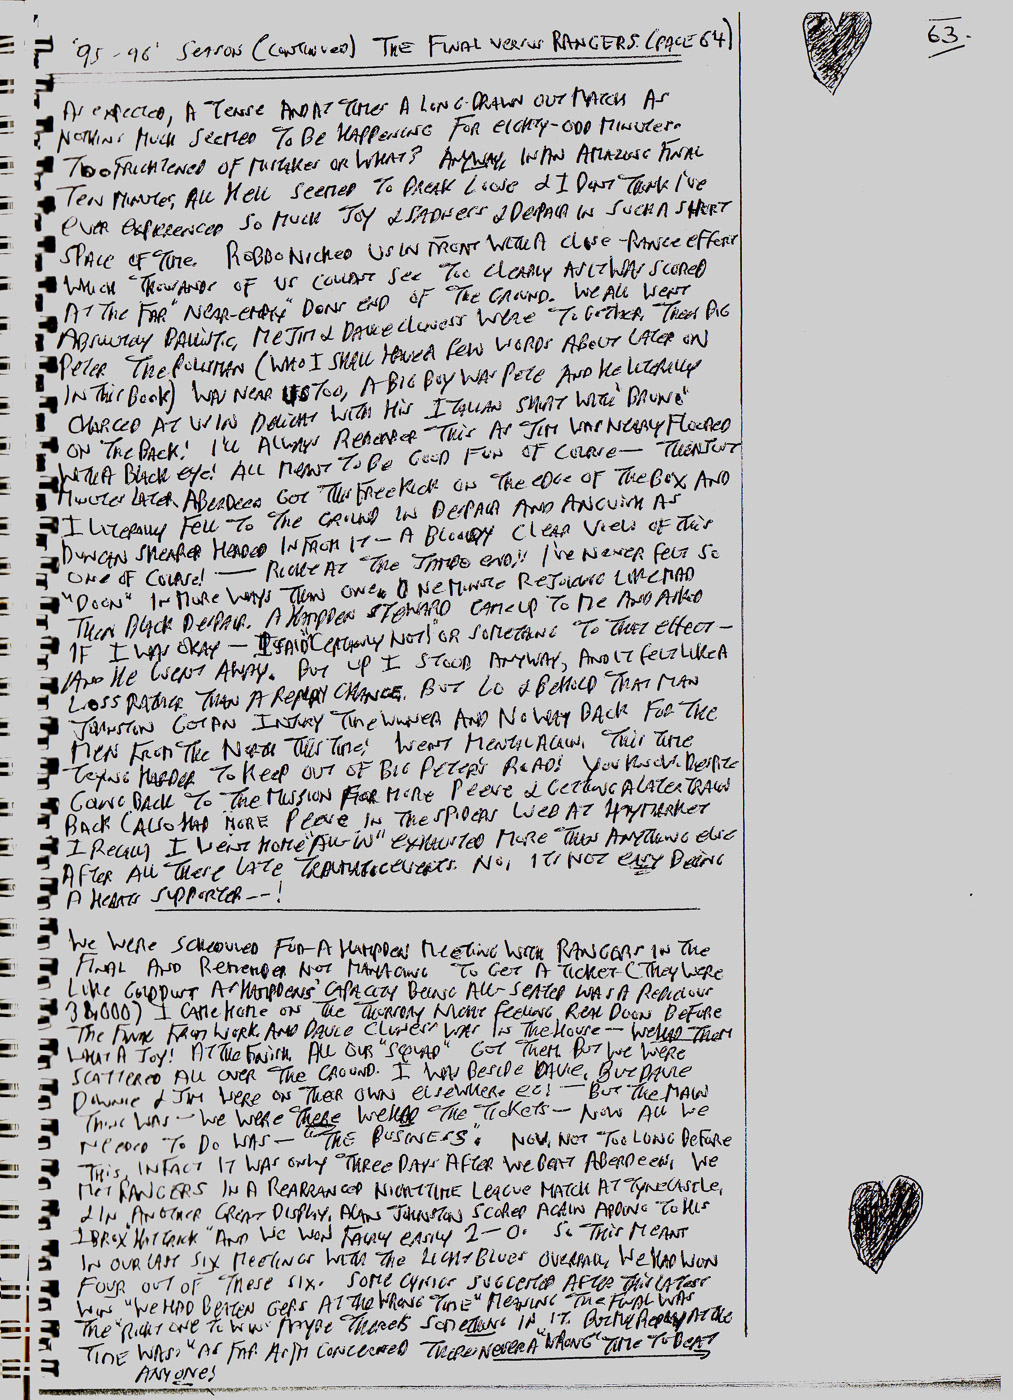 63.
'95-96' SEASON (CONTINUED) THE FINAL VERSUS RANGERS. (PAGE 64)
AS EXPECTED, A TENSE AND AT TIMES A LONG-DRAWN OUT MATCH AS
NOTHING MUCH SEEMED TO BE HAPPENING FOR EIGHTY-ODD MINUTES.
TOO FRIGHTENED OF MISTAKES OR WHAT? ANYWAY, IN AN AMAZING FINAL
TEN MINUTES, ALL HELL SEEMED TO BREAK LOOSE & I DON'T THINK I'VE
EVER EXPERIENCED SO MUCH JOY & SADNESS & DESPAIR IN SUCH A SHORT
SPACE OF TIME. ROBBO NICKED US IN FRONT WITH A CLOSE-RANGE EFFORT
WHICH THOUSANDS OF US COULDN'T SEE TOO CLEARLY AS IT WAS SCORED
AT THE FAR "NEAR-EMPTY" DONS END OF THE GROUND. WE ALL WENT
ABSOLUTELY BALLISTIC, ME JIM & DAVIE CLUNESS WERE TOGETHER, THEN BIG
PETER THE POLISMAN (WHO I SHALL HAVE A FEW WORDS ABOUT LATER ON
IN THIS BOOK) WAS NEAR US TOO, A BIG BOY WAS PETE AND HE LITERALLY
CHARGED AT US IN DELIGHT WITH HIS ITALIAN SHIRT WITH "BRUNO"
ON THE BACK! I'LL ALWAYS REMEMBER THIS AS JIM WAS NEARLY FLOORED
WITH A BLACK EYE! ALL MEANT TO BE GOOD FUN OF COURSE — THEN JUST
MINUTES LATER, ABERDEEN GOT THIS FREE KICK ON THE EDGE OF THE BOX, AND
I LITERALLY FELL TO THE GROUND IN DESPAIR AND ANGUISH AS
DUNCAN SHEARER HEADED IN FROM IT — A BLOODY CLEAR VIEW OF THIS
ONE OF COURSE! — RIGHT AT THE JAMBO END!! I'VE NEVER FELT SO
"DOON" IN MORE WAYS THAN ONE. ONE MINUTE REJOICING LIKE MAD
THEN BLACK DESPAIR. A HAMPDEN STEWARD CAME UP TO ME AND ASKED
IF I WAS OKAY — I SAID "CERTAINLY NOT!" OR SOMETHING TO THAT EFFECT —
AND HE WENT AWAY. BUT UP I STOOD ANYWAY, AND IT FELT LIKE A
LOSS RATHER THAN A REPLAY CHANCE. BUT LO & BEHOLD THAT MAN
JOHNSTON GOT AN INJURY TIME WINNER AND NO WAY BACK FOR THE
MEN FROM THE NORTH THIS TIME! WENT MENTAL AGAIN, THIS TIME
TRYING HARDER TO KEEP OUT OF BIG PETER'S ROAD! YOU KNOW, DESPITE
GOING BACK TO THE MISSION FOR MORE PEEVE & GETTING A LATER TRAIN
BACK (ALSO HAD MORE PEEVE IN THE SPIDERS WEB AT HAYMARKET
I RECALL) I WENT HOME "ALL-IN" EXHAUSTED MORE THAN ANYTHING ELSE
AFTER ALL THESE LATE TRAUMATIC EVENTS. NO, IT'S NOT EASY BEING
A HEARTS SUPPORTER --!
WE WERE SCHEDULED FOR A HAMPDEN MEETING WITH RANGERS IN THE
FINAL AND REMEMBER NOT MANAGING TO GET A TICKET (THEY WERE
LIKE GOLDDUST AS HAMPDENS' CAPACITY BEING ALL-SEATED WAS A
38,000) I CAME HOME ON THE THURSDAY NIGHT FEELING REAL DOON BEFORE
THE FINAL FROM WORK AND DAVIE CLUNESS WAS IN THE HOUSE — WE HAD THEM
WHAT A JOY! AT THE FINISH ALL OUR "SQUAD" GOT THEM BUT WE WERE
SCATTERED ALL OVER THE GROUND. I WAS BESIDE DAVIE, BUT DAVIE
DOWNIE & JIM WERE ON THEIR OWN ELSEWHERE — BUT THE MAIN
THING WAS — WE WERE THERE WE HAD THE TICKETS — NOW ALL WE
NEEDED TO DO WAS — "THE BUSINESS". NOW, NOT TOO LONG BEFORE
THIS, IN FACT IT WAS ONLY THREE DAYS AFTER WE BEAT ABERDEEN, WE
MET RANGERS IN A REARRANGED NIGHT TIME LEAGUE MATCH AT TYNECASTLE,
& IN ANOTHER GREAT DISPLAY, ALAN JOHNSTON SCORED AGAIN ADDING TO HIS
IBROX "HATTRICK" AND WE WON FAIRLY EASILY 2-0. SO THIS MEANT
IN OUR LAST SIX MEETINGS WITH THE LIGHT BLUES OVERALL, WE HAD WON
FOUR OUT OF THESE SIX. SOME CYNICS SUGGESTED AFTER THIS LATEST
WIN "WE HAD BEATEN GERS AT THE WRONG TIME" MEANING THE FINAL WAS
THE "RIGHT ONE TO WIN" MAYBE THERE'S SOMETHING IN IT. BUT MY REPLY AT THE
TIME WAS: "AS FAR AS I'M CONCERNED THERE'S NEVER A "WRONG" TIME TO BEAT
ANYONE!